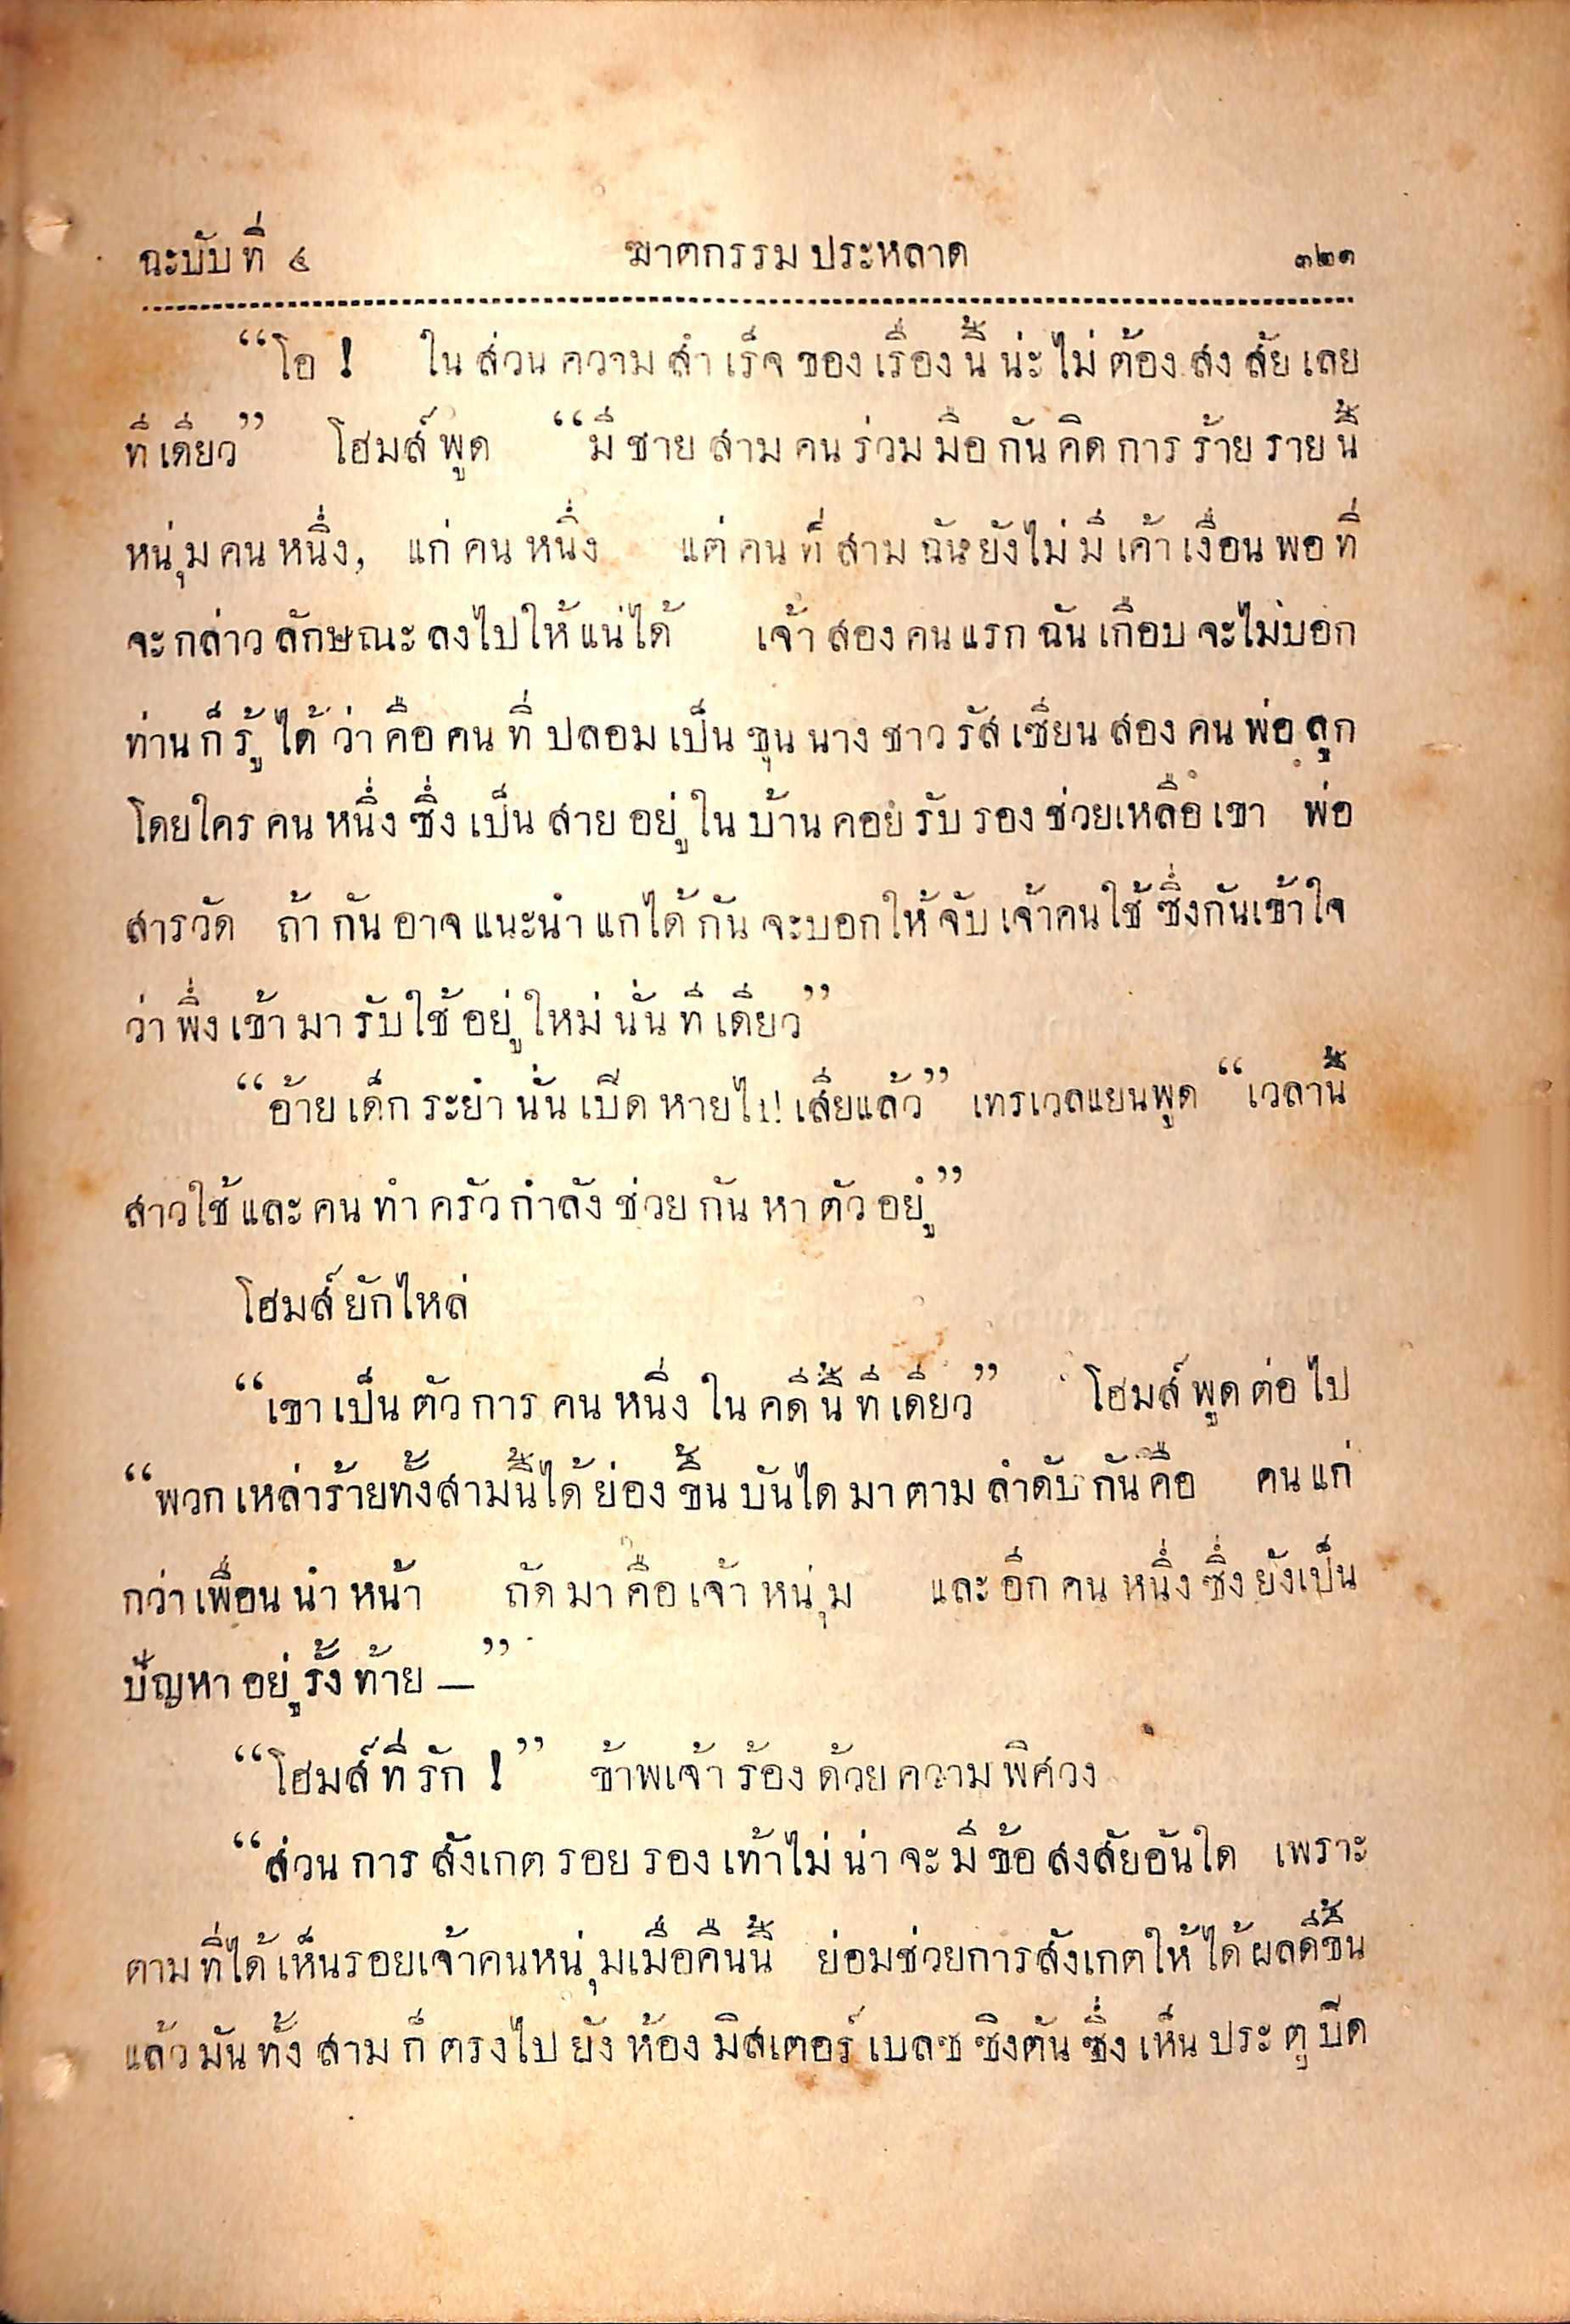 ฉะบับที่ ๔ ฆาตกรรมประหลาด ๓๒๑
“โอ ! ในส่วนความสำเร็จของเรื่องนี้น่ะไม่ต้องสงสัยเลย
ทีเดียว” โฮมส์พูด “มีชายสามคนร่วมมือกันคิดการร้ายรายนี้
หนุ่มคนหนึ่ง, แก่คนหนึ่ง แต่คนที่สามฉันยังไม่มีเค้าเงื่อนพอที่
จะกล่าวลักษณะลงไปให้แน่ได้ เจ้าสองคนแรกฉันเกือบจะไม่บอก
ท่านก็รู้ได้ว่าคือคนที่ปลอมเป็นขุนนางชาวรัสเซียนสองคนพ่อลูก
โดยใครคนหนึ่งซึ่งเป็นสายอยู่ในบ้านคอยรับรองช่วยเหลือเขา พ่อ
สารวัด ถ้ากันอาจแนะนำแกได้กันจะบอกให้จับเจ้าคนใช้ซึ่งกันเข้าใจ
ว่าพึ่งเข้ามารับใช้อยู่ใหม่นั่นทีเดียว”
“อ้ายเด็กระยำนั่นเบีดหายไปเสียแล้ว” เทรเวลแยนพูด “เวลานี้
สาวใช้และคนทำครัวกำลังช่วยกันหาตัวอยู่”
โฮมส์ยักไหล่
“เขาเป็นตัวการคนหนึ่งในคดีนี้ทีเดียว” โฮมส์พูดต่อไป
“พวกเหล่าร้ายทั้งสามนี้ได้ย่องขึ้นบันไดมาตามลำดับกันคือ คนแก่
กว่าเพื่อนนำหน้า ถัดมาคือเจ้าหนุ่ม และอีกคนหนึ่งซึ่งยังเป็น
ปัญหาอยู่รั้งท้าย—”
“โฮมส์ที่รัก !” ข้าพเจ้าร้องด้วยความพิศวง
“ส่วนการสังเกตรอยรองเท้าไม่น่าจะมีข้อสงสัยอันใด เพราะ
ตามที่ได้เห็นรอยเจ้าคนหนุ่มเมื่อคืนนี้ ย่อมช่วยการสังเกตให้ได้ผลดีขึ้น
แล้วมันทั้งสามก็ตรงไปยังห้องมิสเตอร์เบลซซิงตันซึ่งเห็นประตูปีด